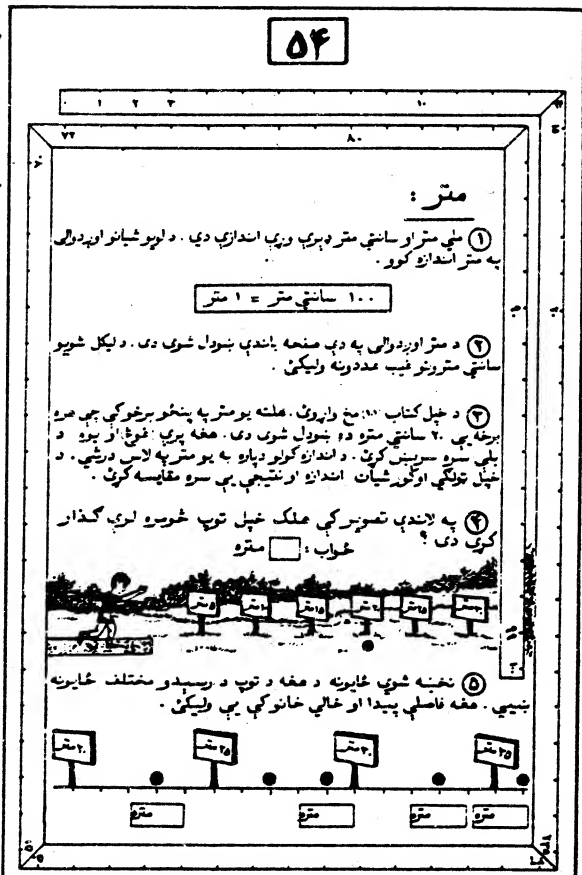 ۵۴
۰ ۱ ۲ ۳ ۱۰
۷۲ ۸۰
متر :
① ملي متر او سانتي متر ډېرې وړې اندازې دي . د لويو شيانو اوږدوالی
په متر اندازه کوو .
۱۰۰ سانتي متر = ۱ متر
② د متر اوږدوالی په دې صفحه باندې ښودل شوی دی . د ليکل شويو
سانتي مترونو غيب عددونه وليکئ .
③ د خپل کتاب مخ واړوئ . هلته يو متر په پنځو برخو کې چې هره
برخه يې ۲۰ سانتي متره ده ښودل شوی دی . هغه پرې غوڅ او يوه د
بلې سره سريښ کړئ . د اندازه کولو دپاره به يو متر په لاس درشي . د
خپل ټولګي او کور شيان اندازه او نتيجې يې سره مقايسه کړئ .
④ په لاندې تصوير کې ملک خپل توپ څومره لرې ګذار
کړی دی ؟
ځواب : متره
۵ متر ۱۰ متر ۱۵ متر ۲۰ متر ۲۵ متر ۳۰ متر
⑤ نخښه شوي ځايونه د هغه د توپ د رسيدو مختلف ځايونه
ښيي . هغه فاصلې پيدا او خالي خانو کې يې وليکئ .
۲۰ متر ۲۵ متر ۳۰ متر ۳۵ متر
متره متره متره متره